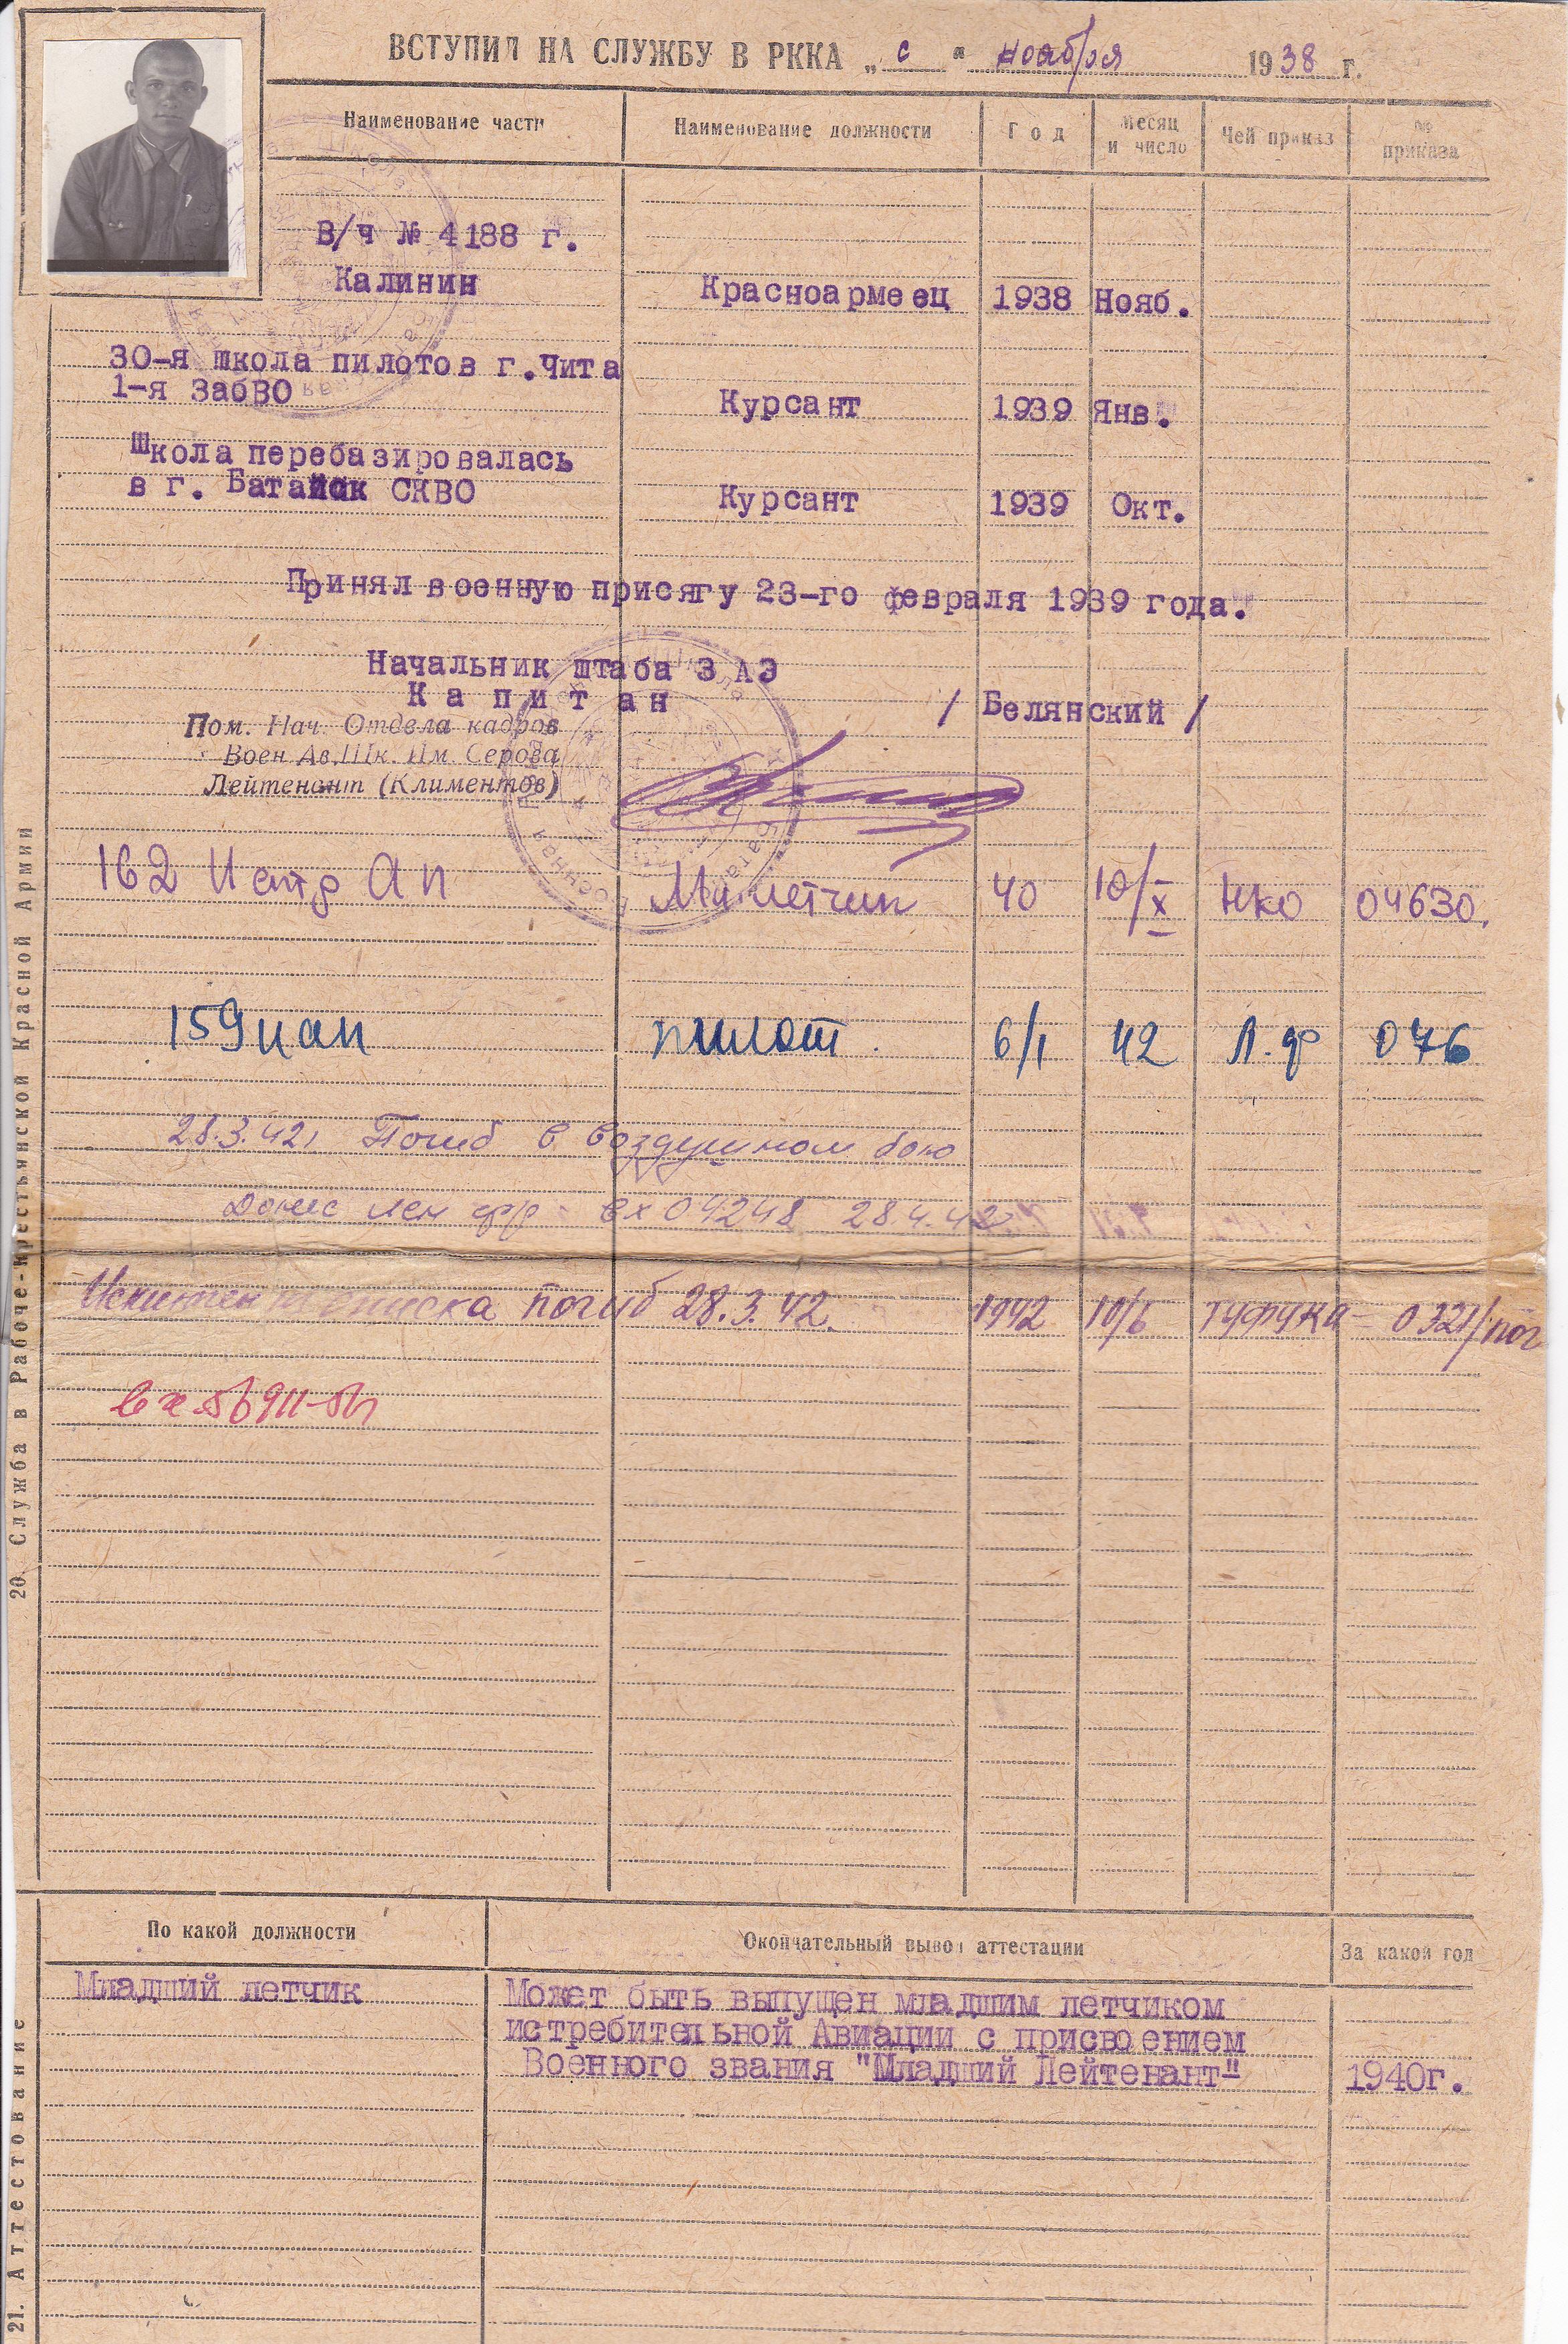 ВСТУПИЛ НА СЛУЖБУ В РККА „ с “ ноября 1938 г.
Наименование части Наименование должности Год Месяц и число Чей приказ № приказа
В/ч № 4188 г.
Калинин Красноармеец 1938 Нояб.
30-я школа пилотов г.Чита
1-я ЗабВО Курсант 1939 Янв.
Школа перебазировалась
в г. Батайск СКВО Курсант 1939 Окт.
Принял военную присягу 23-го февраля 1939 года.
Начальник штаба 3 АЭ
Капитан / Белянский /
Пом. Нач. Отдела кадров
Воен Ав.Шк. Им. Серова
Лейтенант (Климентов)
162 Ап Мл летчик 40 10/X НКО 04630.
159 иап пилот. 6/1 42 Л.ф 076
28.3.42 Погиб в воздушном бою
Донес лен фр- вх 04248 28.4.42
Исключен из списка погиб 28.3.42. 1942 10/6 ГУФУКА- 0321/пог
вх
20. Служба в Рабоче-Крестьянской Красной Армии
По какой должности Окончательный вывод аттестации За какой год
Младший летчик Может быть выпущен младшим летчиком
истребительной Авиации с присвоением
Военного звания "Младший Лейтенант" 1940г.
21. Аттестование